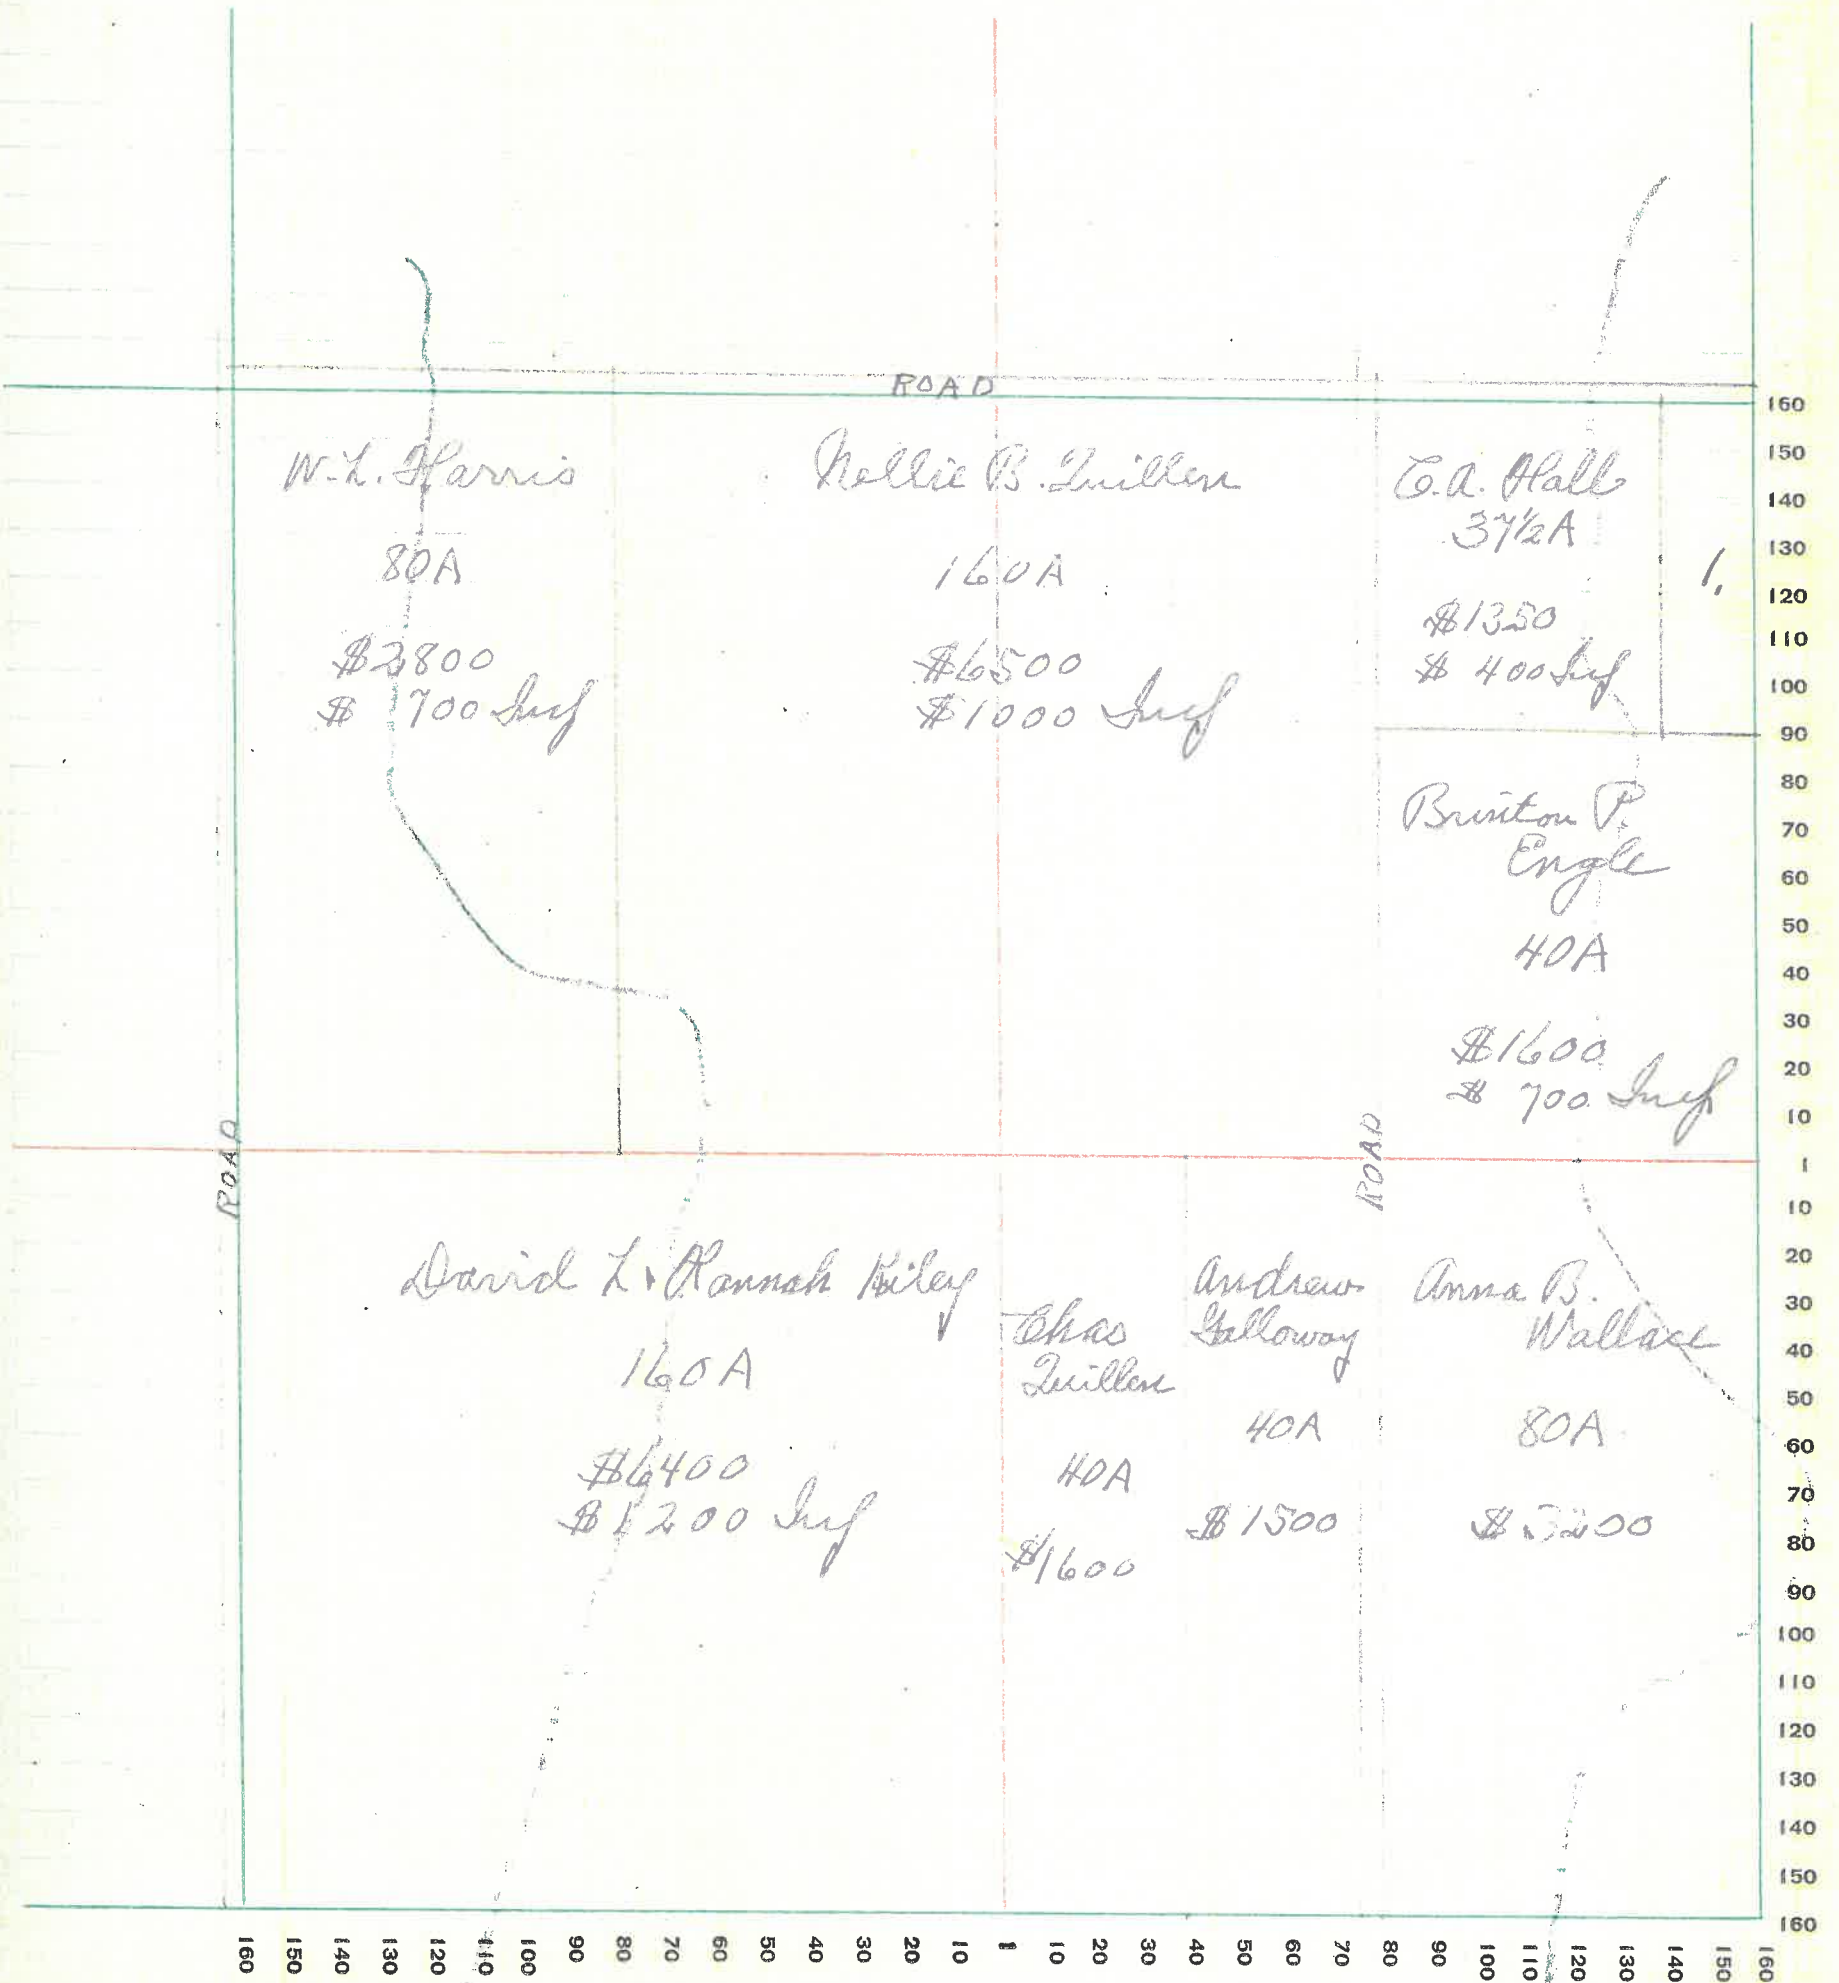 ROAD
W. L. Harris
80A
$2800
$ 700 Imp
Nellie B. Quillen
160A
$6500
$1000 Imp
C. A. Hall
37½A
$1350
$ 400 Imp
1.
Brinton P.
Engle
40A
$1600
$ 700 Imp
ROAD
ROAD
David L. & Hannah Kiley
160A
$6400
$1200 Imp
Chas
Quillen
40A
$1600
Andrew
Galloway
40A
$1500
Anna B.
Wallace
80A
$3200
160
150
140
130
120
110
100
90
80
70
60
50
40
30
20
10
1
10
20
30
40
50
60
70
80
90
100
110
120
130
140
150
160
160 150 140 130 120 110 100 90 80 70 60 50 40 30 20 10 1 10 20 30 40 50 60 70 80 90 100 110 120 130 140 150 160